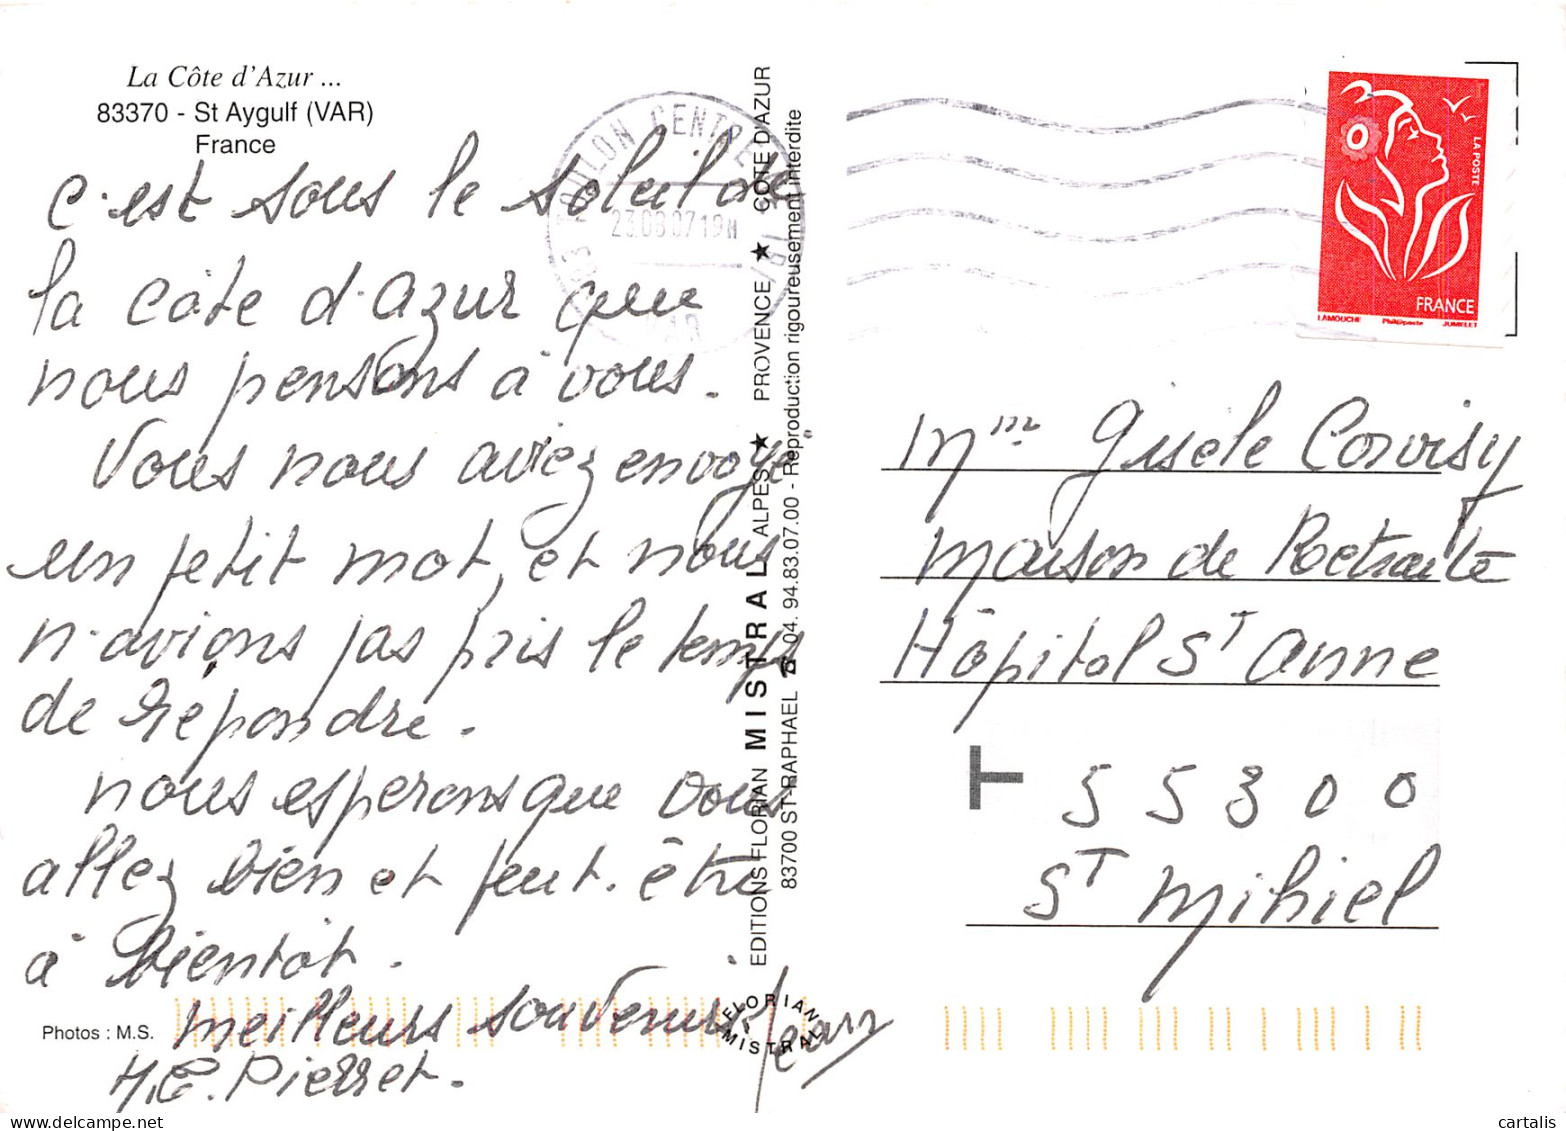 La Côte d'Azur ...
83370 - St Aygulf (VAR)
France
C'est sous le soleil de
la côte d'azur que
nous pensons à vous.
Vous nous aviez envoyé
un petit mot, et nous
n'avions pas pris le temps
de répondre.
nous esperons que vous
allez bien et peut-être
à bientôt.
meilleurs souvenirs
Jean
H.E. Pierret.
Photos : M.S.
EDITIONS FLORIAN MISTRAL ALPES ★ PROVENCE ★ COTE D'AZUR
83700 ST-RAPHAEL ☎ 04. 94.83.07.00 - Reproduction rigoureusement interdite
FLORIAN
MISTRAL
83 TOULON CENTRE
VAR
LA POSTE
FRANCE
LAMOUCHE Phil@poste JUMELET
Mme Gisèle Corvisy
maison de Retraite
Hôpital St anne
T 55300
St Mihiel
cartalis